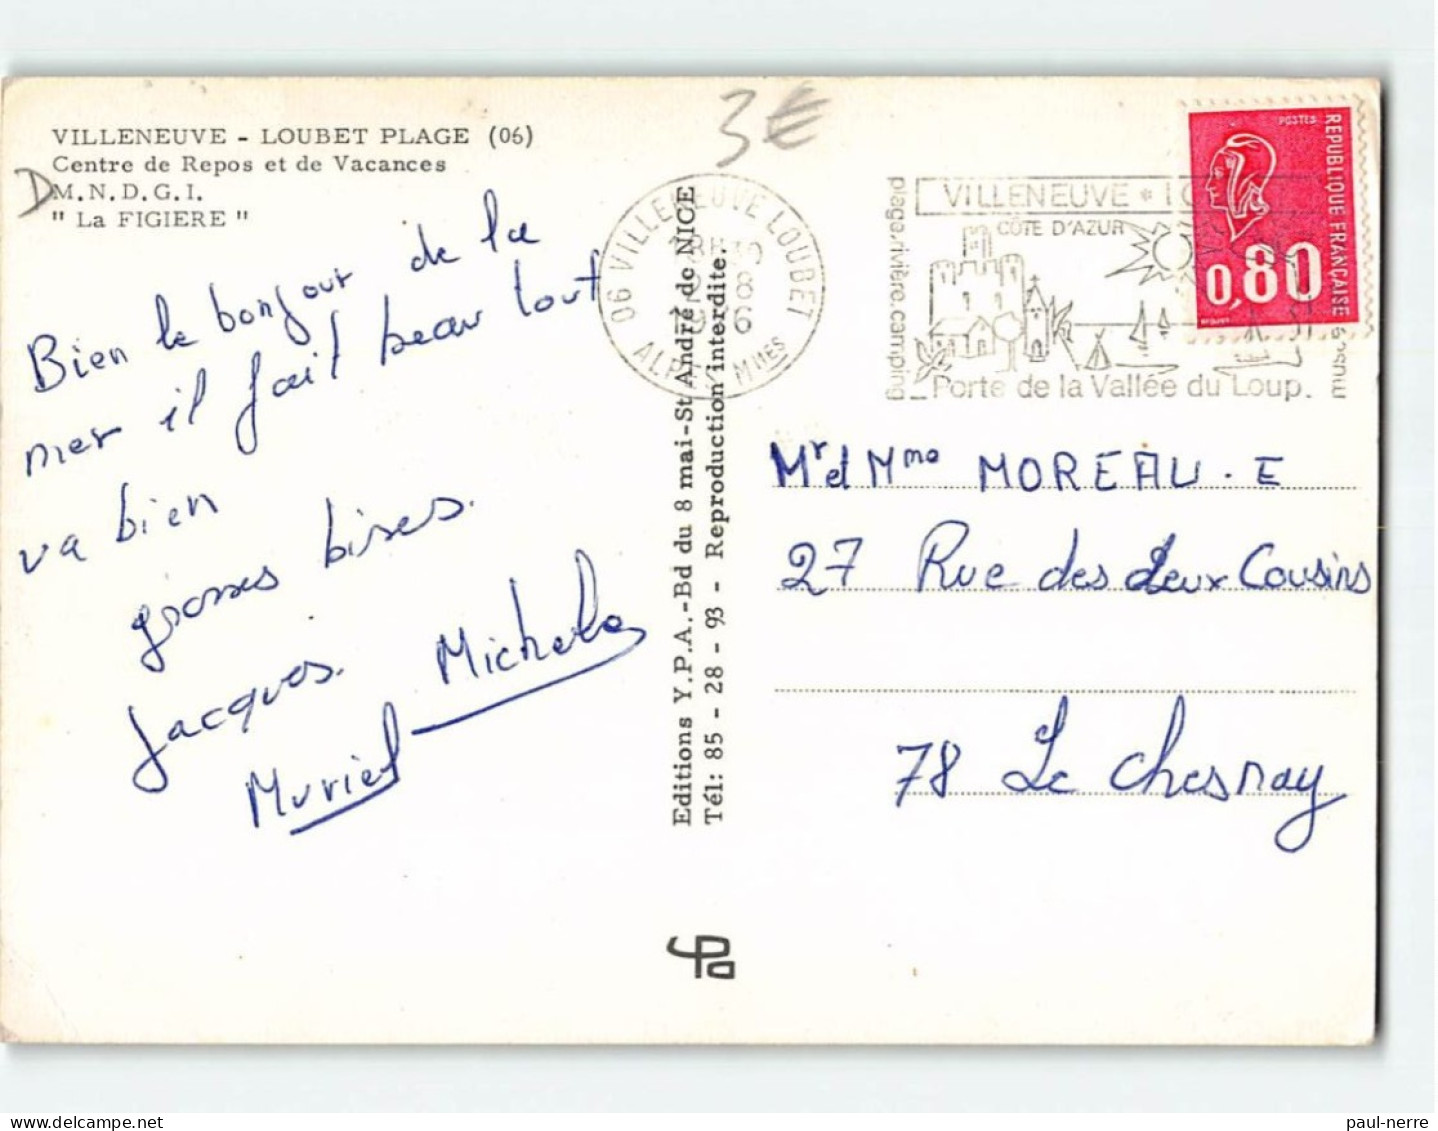 VILLENEUVE - LOUBET PLAGE (06)
Centre de Repos et de Vacances
M.N.D.G.I.
" La FIGIERE "
D
3€
Bien le bonjour de la
mer il fait beau tout
va bien
grosses bises.
Jacques. Michele
Muriel
Editions Y.P.A.-Bd du 8 mai-St André de NICE
Tél: 85 - 28 - 93 - Reproduction interdite.
06 VILLENEUVE LOUBET
ALPES MMES
VILLENEUVE * LO
CÔTE D'AZUR
plage.rivière.camping
Porte de la Vallée du Loup.
POSTES
REPUBLIQUE FRANÇAISE
0,80
Mr et Mme MOREAU . E
27 Rue des deux Cousins
78 Le Chesnay
ypa
paul-nerre